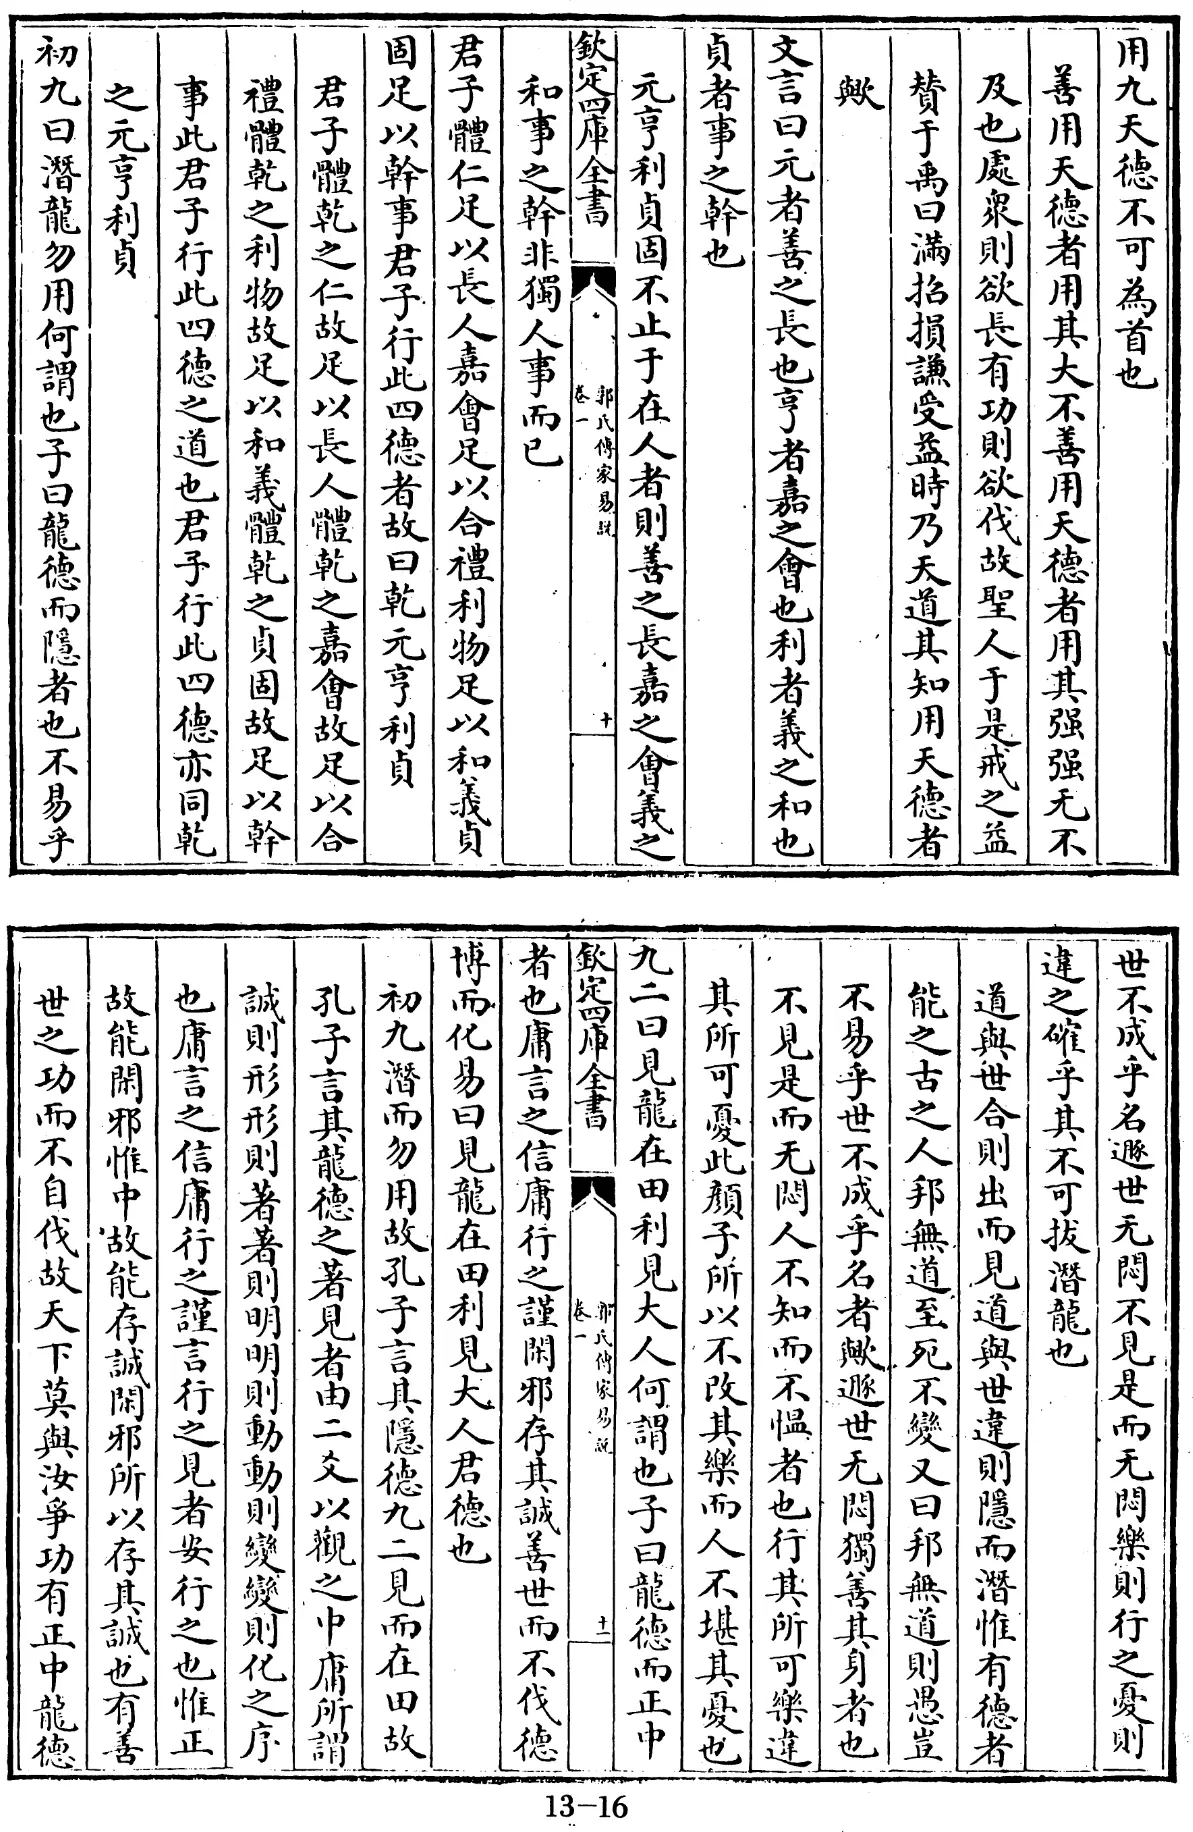 用九天德不可為首也
善用天德者用其大不善用天德者用其强强无不
及也處衆則欲長有功則欲伐故聖人于是戒之益
賛于禹曰滿招損謙受益時乃天道其知用天德者
歟
文言曰元者善之長也亨者嘉之會也利者義之和也
貞者事之幹也
元亨利貞固不止于在人者則善之長嘉之會義之
欽定四庫全書
郭氏傳家易說
卷一
十
和事之幹非獨人事而已
君子體仁足以長人嘉會足以合禮利物足以和義貞
固足以幹事君子行此四德者故曰乾元亨利貞
君子體乾之仁故足以長人體乾之嘉會故足以合
禮體乾之利物故足以和義體乾之貞固故足以幹
事此君子行此四德之道也君子行此四德亦同乾
之元亨利貞
初九曰潛龍勿用何謂也子曰龍德而隱者也不易乎
世不成乎名遯世无悶不見是而无悶樂則行之憂則
違之確乎其不可拔潛龍也
道與世合則出而見道與世違則隱而潛惟有德者
能之古之人邦無道至死不變又曰邦無道則愚豈
不易乎世不成乎名者歟遯世无悶獨善其身者也
不見是而无悶人不知而不愠者也行其所可樂違
其所可憂此顏子所以不改其樂而人不堪其憂也
九二曰見龍在田利見大人何謂也子曰龍德而正中
欽定四庫全書
郭氏傳家易說
卷一
十一
者也庸言之信庸行之謹閑邪存其誠善世而不伐德
博而化易曰見龍在田利見大人君德也
初九潛而勿用故孔子言其隱德九二見而在田故
孔子言其龍德之著見者由二爻以觀之中庸所謂
誠則形形則著著則明明則動動則變變則化之序
也庸言之信庸行之謹言行之見者安行之也惟正
故能閑邪惟中故能存誠閑邪所以存其誠也有善
世之功而不自伐故天下莫與汝爭功有正中龍德
13-16